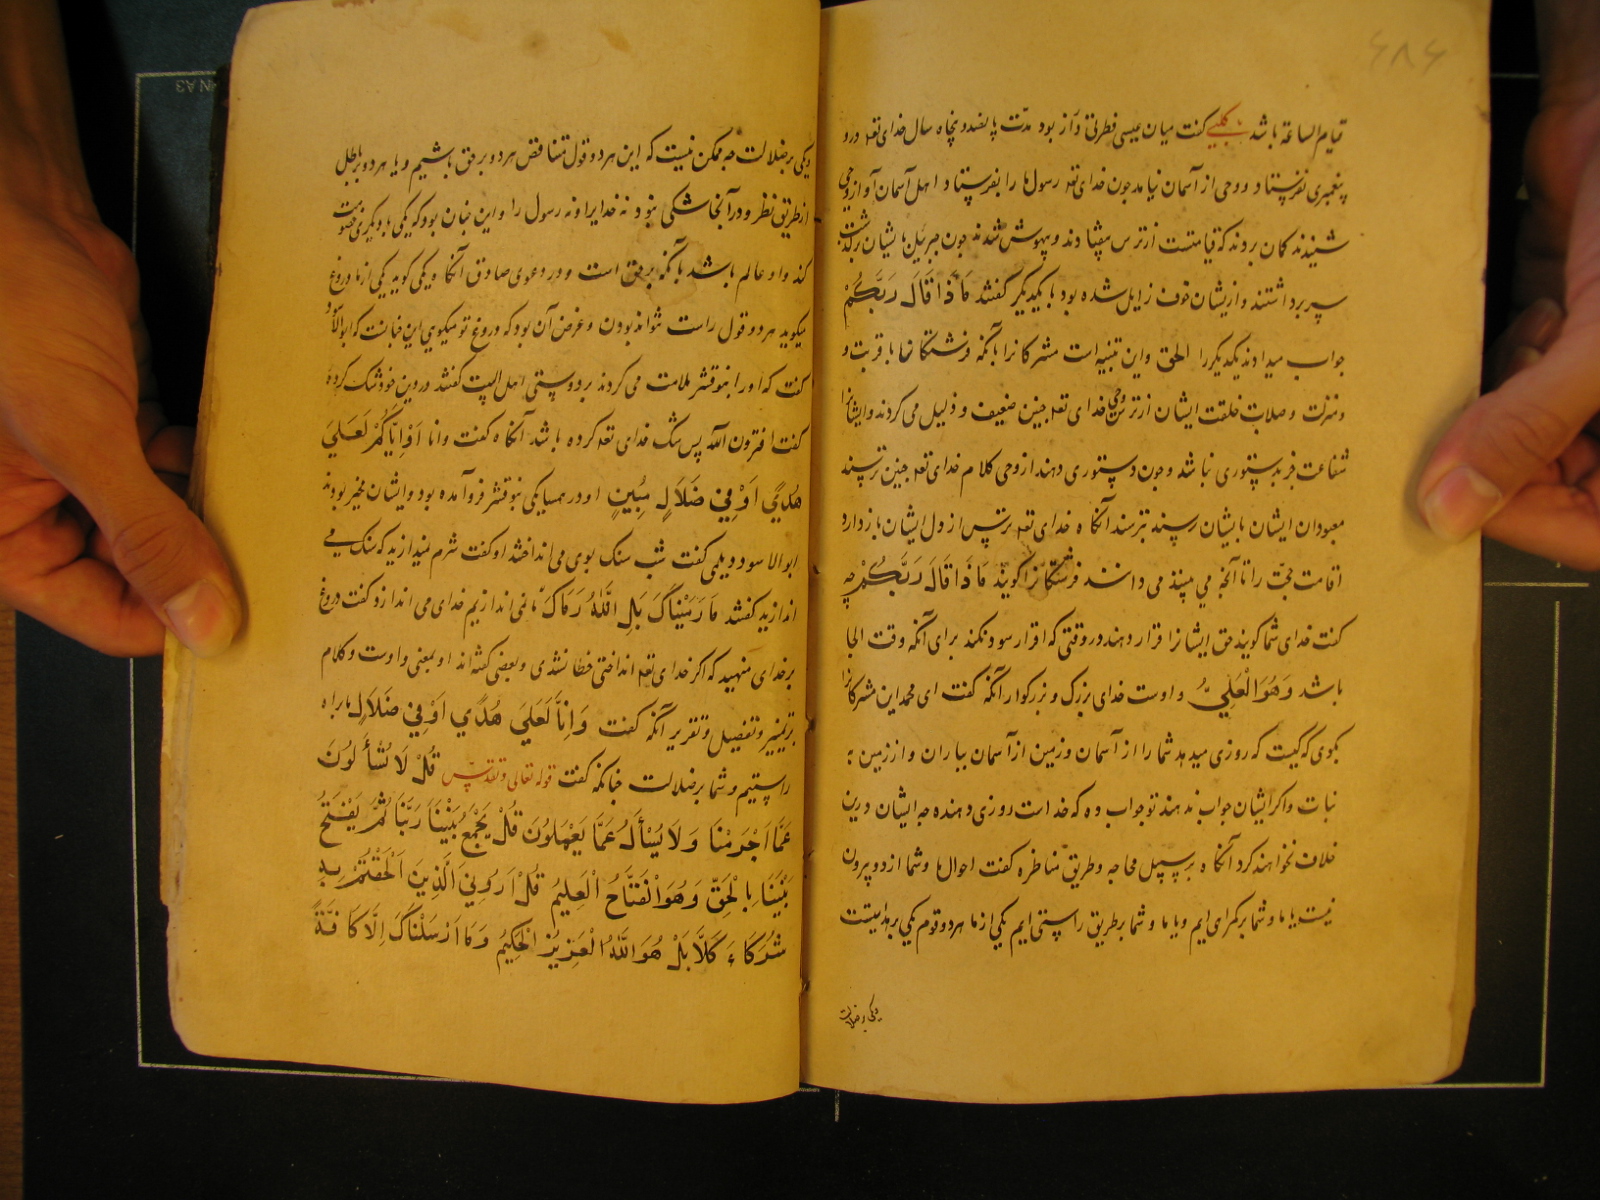 ۶۸۶
قیام الساعة باشد کلبی گفت میان عیسی فطرتی دراز بود مدت پانصد و پنجاه سال خدای تعه درو
پیغمبری نفرستاد و وحی از آسمان نیامد چون خدای تعه رسول ما را بفرستاد اهل آسمان آواز وحی
شنیدند گمان بردند که قیامتست از ترس بیفتادند و بیهوش شدند چون جبرئیل بایشان برگذشت
سر برداشتند و از یشان خوف زایل شده بود با یکدیگر گفتند مَا ذَا قَالَ رَبُّكُمْ
جواب میدادند یکدیگر را الحق و این تنبیه است مشرکانرا بآنکه فرشتگان ما با قربت و
و منزلت و صلابت خلقت ایشان از ترس وحی خدای تعه چنین ضعیف و ذلیل می کردند و ایشانرا
شفاعت جز بدستوری نباشد و چون دستوری دهند از وحی کلام خدای تعه چنین ترسند
معبودان ایشان بایشان رسند بترسند آنگاه خدای تعه ترس از دل ایشان باز دارد
اقامت حجت را تا آنچه می بینند می دانند فرشتگانرا گویند مَا ذَا قَالَ رَبُّكُمْ چه
گفت خدای شما گویند حق ایشانرا قرار دهند در وقتی که اقرار سود نکند برای آنکه وقت الجا
باشد وَهُوَ الْعَلِيُّ و اوست خدای بزرگ و بزرکوار آنگه گفت ای محمد این مشرکانرا
بگوی که کیست که روزی میدهد شما را از آسمان و زمین از آسمان بباران و از زمین به
نبات و اگر ایشان جواب ندهند تو جواب ده که خداست روزی دهنده چه ایشان درین
خلاف نخواهند کرد آنگاه بر سبیل محاجه و طریق مناظره گفت احوال ما و شما از دو بیرون
نیست یا ما و شما بر گمرای ایم و یا ما و شما بر طریق راستی ایم یکی از ما هر دو قوم یکی بر هدایتست
ویکی بر ضلالت
ویکی بر ضلالت چه ممکن نیست که این هر دو قول متناقض هر دو بر حق باشیم و یا هر دو بر باطل
از طریق نظر و در آنجا شکی نبود نه خدایرا و نه رسول را و این چنان بود که یکی با دیگری خصومت
کند و او عالم باشد بآنکه بر حق است و در دعوی صادق آنگاه یکی گوید یکی از ما دروغ
میگوید هر دو قول راست نتواند بودن و غرض آن بود که دروغ تو میگوی این چنانست که ابوالاسود
گفت که او را بنو قشیر ملامت می کردند بر دوستی اهل البیت گفتند در دین خود شک کرده
گفت افترون الله پس شک خدای تعه کرده باشد آنگاه گفت وانا اَوْ اِيَّاكُمْ لَعَلَىٰ
هُدًي اَوْ فِي ضَلَالٍ مُبِينٍ او در همسایگی بنو قشیر فرود آمده بود و ایشان مجبر بودند
ابو الاسود دیلمی گفت شب سنک بوی می انداختند او گفت شرم نمیدارید که سنک می
اندازید گفتند مَا رَمَيْنَاكَ بَلِ اللهُ رَمَاكَ ما نمی اندازیم خدای می اندازد گفت دروغ
بر خدای منهید که اگر خدای تعه انداختی خطا نشدی و بعضی گفته اند او بمعنی واوست و کلام
بر تمییز و تفصیل و تقریر آنگه گفت وَاِنَّا لَعَلَىٰ هُدًي اَوْ فِي ضَلَالٍ ما براه
راستیم و شما بر ضلالت چنانکه گفت قوله تعالی وتقدس قُلْ لَا تُسْأَلُونَ
عَمَّا اَجْرَمْنَا وَلَا نُسْأَلُ عَمَّا يَعْمَلُونَ قُلْ يَجْمَعُ بَيْنَنَا رَبُّنَا ثُمَّ يَفْتَحُ
بَيْنَنَا بِالْحَقِّ وَهُوَ الْفَتَّاحُ الْعَلِيمُ قُلْ اَرُونِيَ الَّذِينَ اَلْحَقْتُمْ بِهِ
شُرَكَاءَ كَلَّا بَلْ هُوَ اللهُ الْعَزِيزُ الْحَكِيمُ وَمَا اَرْسَلْنَاكَ اِلَّا كَافَّةً